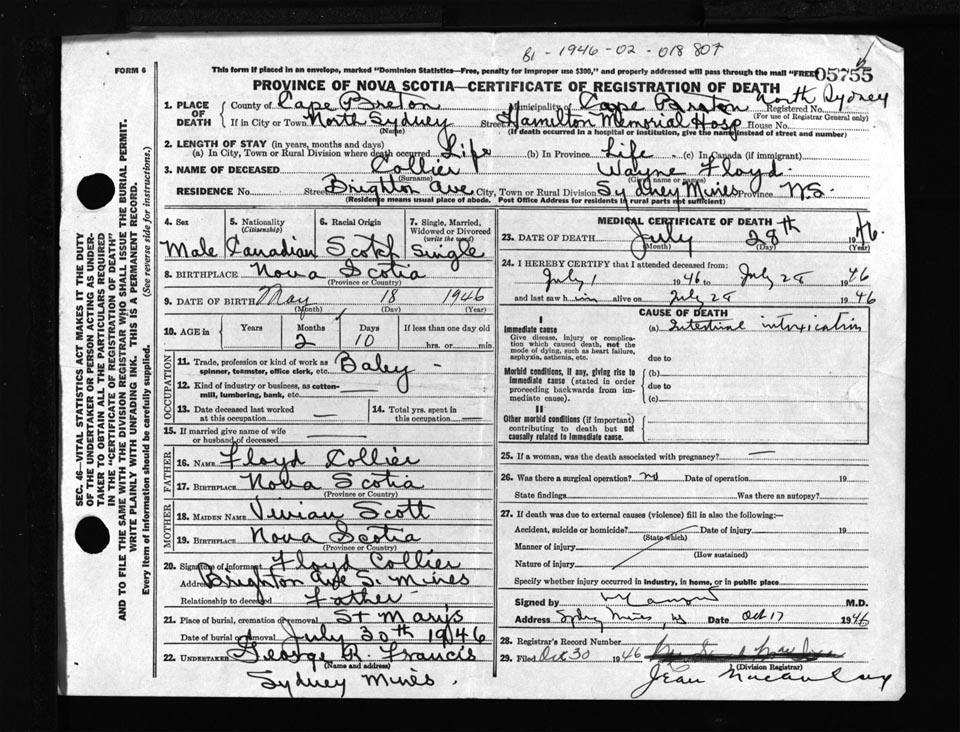 B1 - 1946 - 02 - 018 807
FORM 6
This form if placed in an envelope, marked "Dominion Statistics—Free, penalty for improper use $300," and properly addressed will pass through the mail "FREE"
05755
PROVINCE OF NOVA SCOTIA—CERTIFICATE OF REGISTRATION OF DEATH
1. PLACE OF DEATH { County of Cape Breton Municipality of Cape Breton North Sydney Registered No.
(For use of Registrar General only)
If in City or Town North Sydney Street Hamilton Memorial Hosp House No.
(Name) (If death occurred in a hospital or institution, give the name instead of street and number)
2. LENGTH OF STAY (in years, months and days)
(a) In City, Town or Rural Division where death occurred Life (b) In Province Life (c) In Canada (if immigrant)
3. NAME OF DECEASED Collier Wayne Floyd
(Surname) (Given name or names)
RESIDENCE No. Street Brighton Ave City, Town or Rural Division Sydney Mines Province N.S.
(Residence means usual place of abode. Post Office Address for residents in rural parts not sufficient)
4. Sex 5. Nationality (Citizenship) 6. Racial Origin 7. Single, Married, Widowed or Divorced (write the word)
Male Canadian Scotch Single
8. BIRTHPLACE Nova Scotia
(Province or Country)
9. DATE OF BIRTH May 18 1946
(Month) (Day) (Year)
10. AGE in { Years Months Days If less than one day old
2 10 hrs. or min.
OCCUPATION
11. Trade, profession or kind of work as spinner, teamster, office clerk, etc. Baby -
12. Kind of industry or business, as cotton-mill, lumbering, bank, etc.
13. Date deceased last worked at this occupation — 14. Total yrs. spent in this occupation —
15. If married give name of wife or husband of deceased —
FATHER
16. NAME Floyd Collier
17. BIRTHPLACE Nova Scotia
(Province or Country)
MOTHER
18. MAIDEN NAME Vivian Scott
19. BIRTHPLACE Nova Scotia
(Province or Country)
20. Signature of informant Floyd Collier
Address Brighton Ave S. Mines
Relationship to deceased Father
21. Place of burial, cremation or removal St Mary's
Date of burial or removal July 30th 1946
22. UNDERTAKER George R. Francis
(Name and address)
Sydney Mines.
MEDICAL CERTIFICATE OF DEATH
23. DATE OF DEATH July 28th 1946.
(Month) (Day) (Year)
24. I HEREBY CERTIFY that I attended deceased from:
July 1 1946 to July 28 1946
and last saw h im alive on July 28 1946
CAUSE OF DEATH
I
Immediate cause (a) Intestinal intoxication
Give disease, injury or complication which caused death, not the mode of dying, such as heart failure, asphyxia, asthenia, etc. due to
Morbid conditions, if any, giving rise to immediate cause (stated in order proceeding backwards from immediate cause). (b) due to (c)
II
Other morbid conditions (if important) contributing to death but not causally related to immediate cause.
25. If a woman, was the death associated with pregnancy? —
26. Was there a surgical operation? no Date of operation 19
State findings Was there an autopsy?
27. If death was due to external causes (violence) fill in also the following:—
Accident, suicide or homicide? Date of injury 19
(State which)
Manner of injury
(How sustained)
Nature of injury
Specify whether injury occurred in industry, in home, or in public place
Signed by M.D.
Address Sydney Mines, NS Date Oct 17 1946
28. Registrar's Record Number
29. Filed Oct 30 1946
(Division Registrar)
Jean Macaulay
SEC. 46—VITAL STATISTICS ACT MAKES IT THE DUTY
OF THE UNDERTAKER OR PERSON ACTING AS UNDER-
TAKER TO OBTAIN ALL THE PARTICULARS REQUIRED
IN THE "CERTIFICATE OF REGISTRATION OF DEATH"
AND TO FILE THE SAME WITH THE DIVISION REGISTRAR WHO SHALL ISSUE THE BURIAL PERMIT.
WRITE PLAINLY WITH UNFADING INK. THIS IS A PERMANENT RECORD.
Every item of information should be carefully supplied. (See reverse side for instructions.)